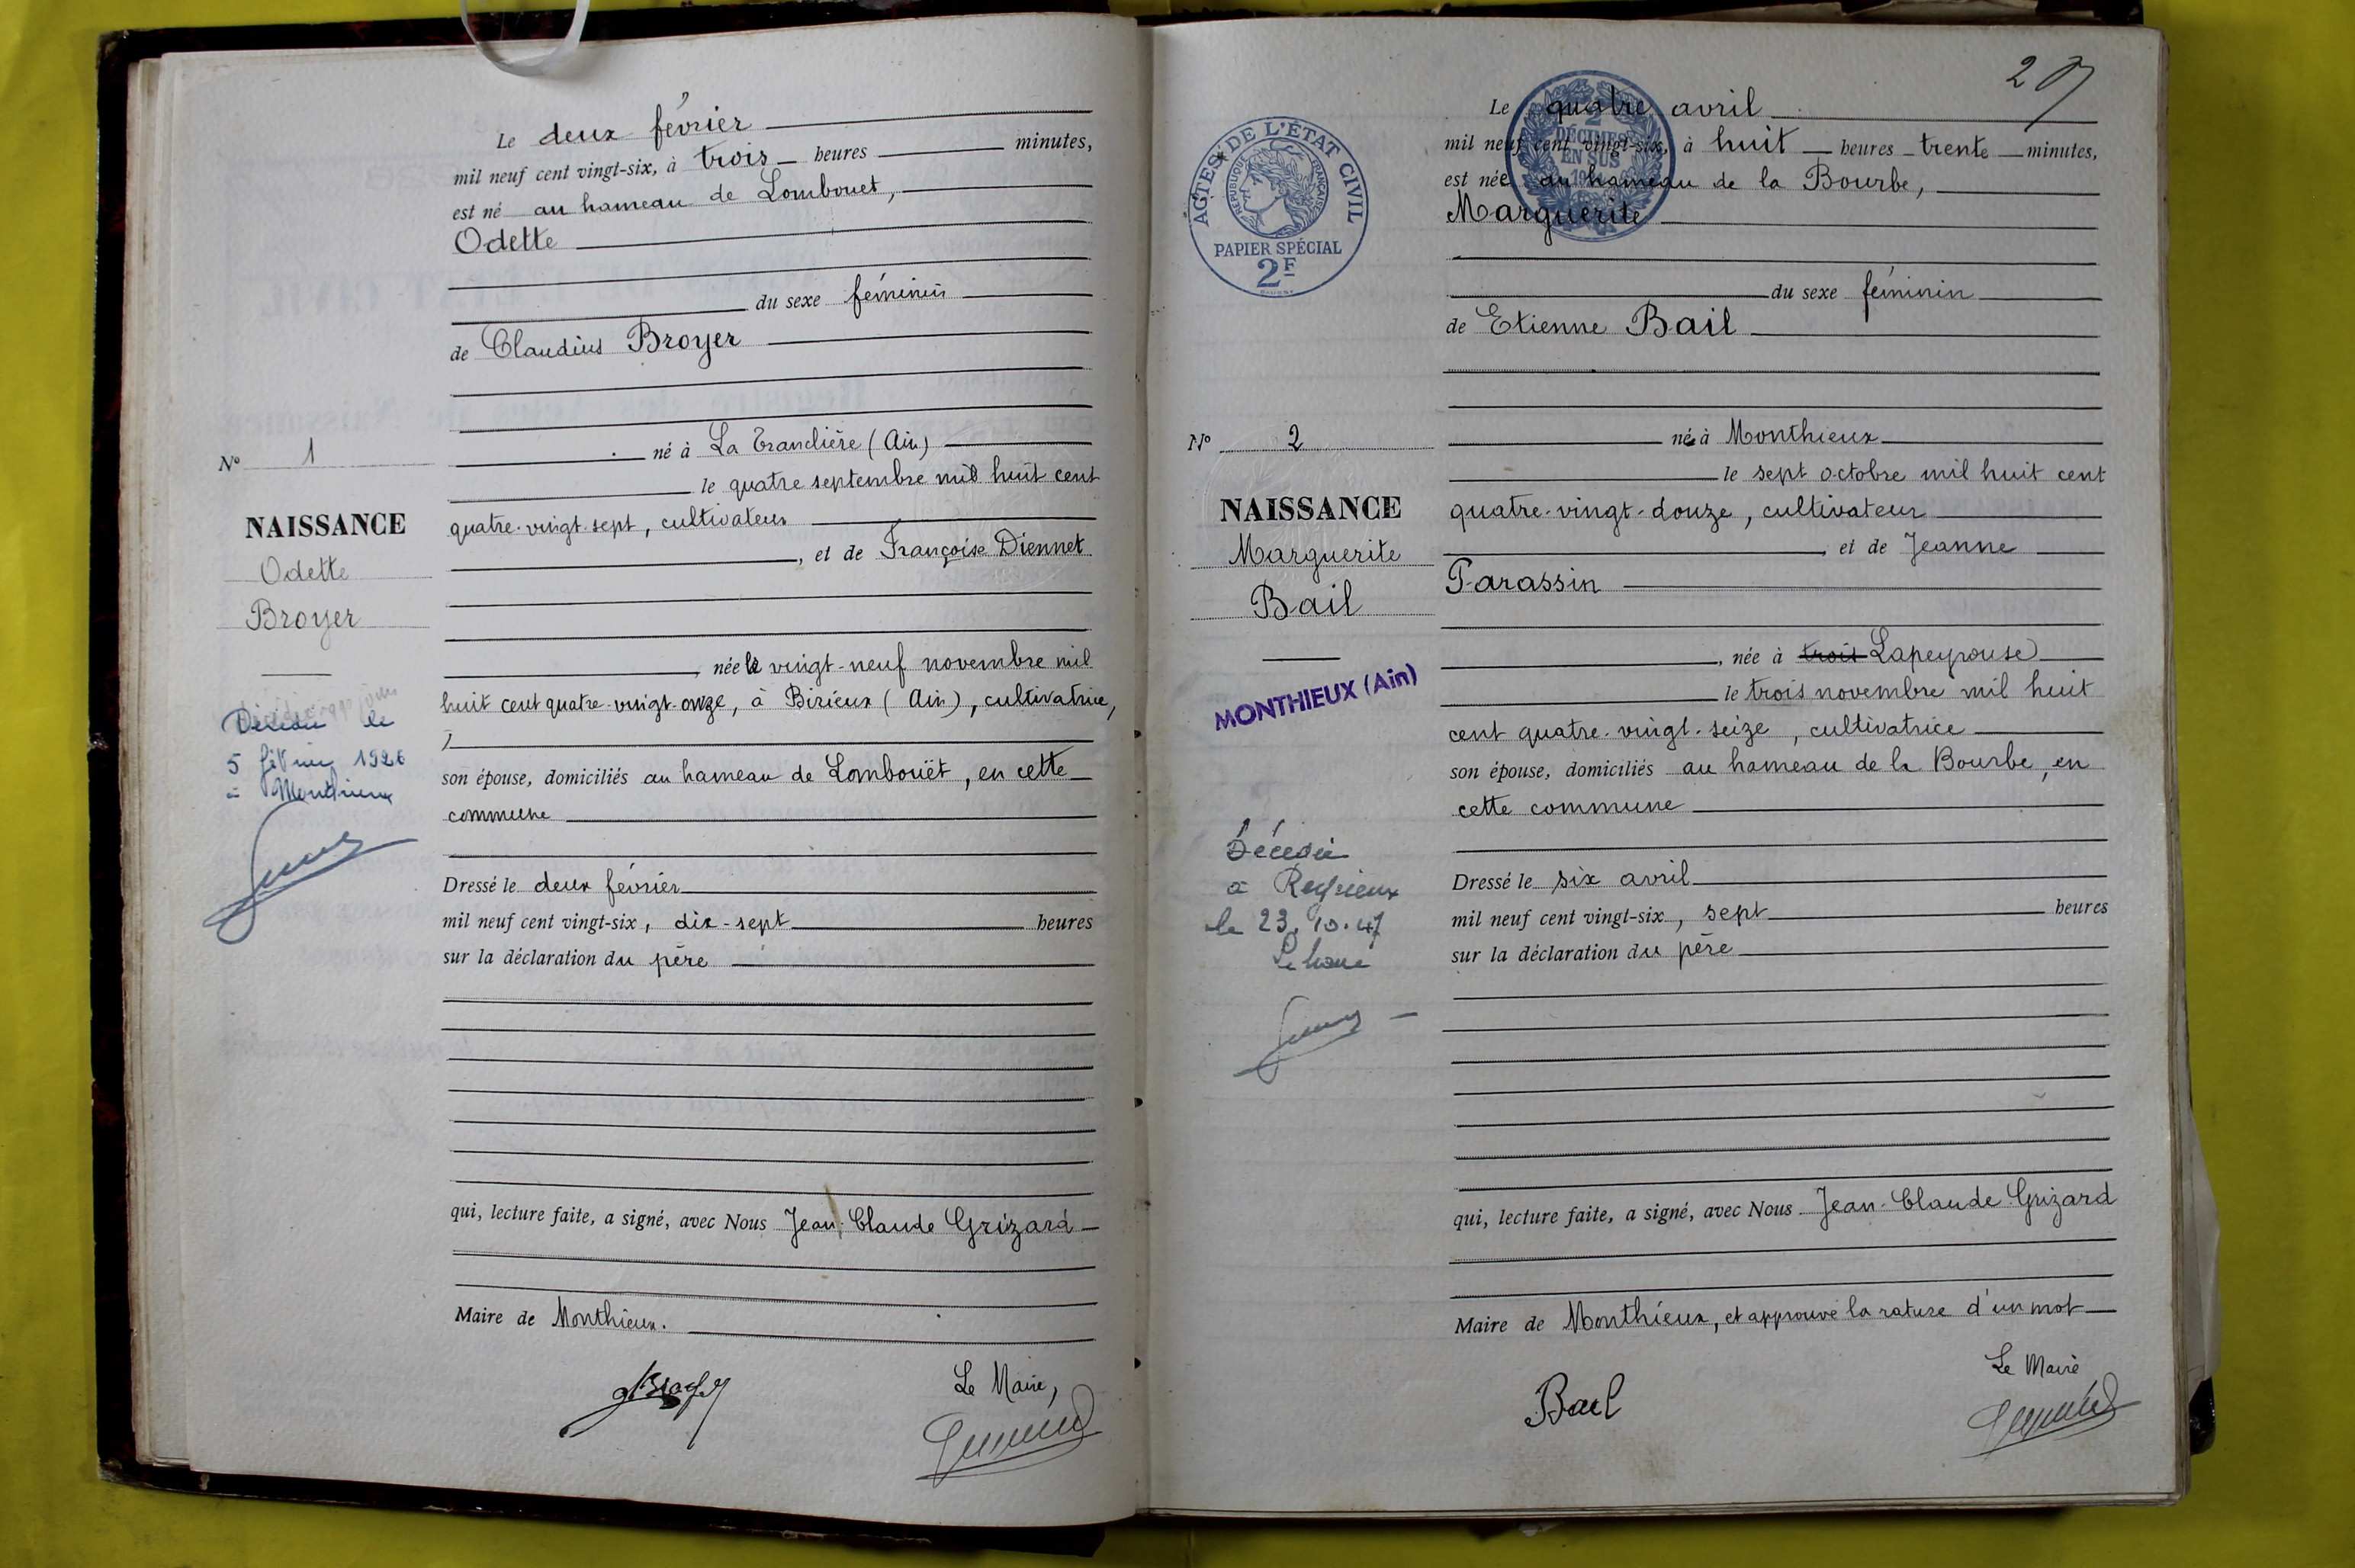 Le deux février
mil neuf cent vingt-six, à trois heures minutes,
est né au hameau de Lombouet,
Odette
du sexe féminin
de Claudius Broyer
né à La Tranclière (Ain)
le quatre septembre mil huit cent
quatre-vingt-sept, cultivateur
, et de Françoise Diennet
née le vingt-neuf novembre mil
huit cent quatre-vingt-onze, à Birieux (Ain), cultivatrice,
son épouse, domiciliés au hameau de Lombouët, en cette
commune
Dressé le deux février
mil neuf cent vingt-six, dix-sept heures
sur la déclaration du père
qui, lecture faite, a signé, avec Nous Jean-Claude Grizard
Maire de Monthieux.
Le Maire,
N° 1
NAISSANCE
Odette
Broyer
Décédée le
5 février 1926
à Monthieux
27
Le quatre avril
mil neuf cent vingt-six, à huit heures trente minutes,
est née au hameau de la Bourbe,
Marguerite
du sexe féminin
de Etienne Bail
né à Monthieux
le sept octobre mil huit cent
quatre-vingt-douze, cultivateur
, et de Jeanne
Parassin
, née à trois Lapeyrouse
le trois novembre mil huit
cent quatre-vingt-seize, cultivatrice
son épouse, domiciliés au hameau de la Bourbe, en
cette commune
Dressé le six avril
mil neuf cent vingt-six, sept heures
sur la déclaration du père
qui, lecture faite, a signé, avec Nous Jean-Claude Grizard
Maire de Monthieux, et approuvé la rature d'un mot
Bail
Le Maire
ACTES DE L'ÉTAT CIVIL
RÉPUBLIQUE FRANÇAISE
PAPIER SPÉCIAL
2F
2
DÉCIMES
EN SUS
N° 2
NAISSANCE
Marguerite
Bail
MONTHIEUX (Ain)
Décédée
à Reyrieux
le 23.10.47
Le Maire